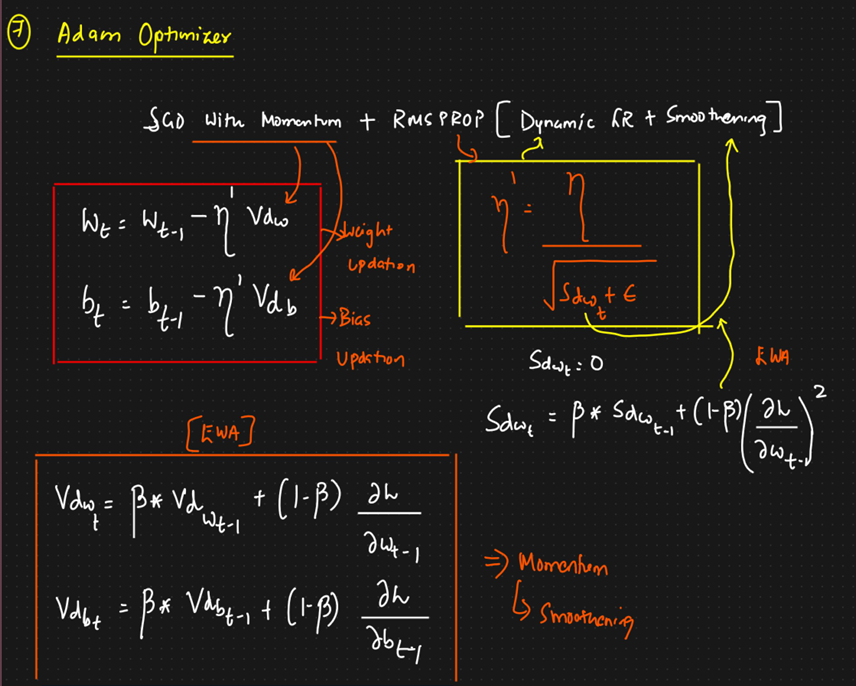 ⑦ Adam Optimizer
SGD With Momentum + RMSPROP [Dynamic LR + Smoothening]
Wt = Wt-1 − η' Vdw
→ Weight Updation
bt = bt-1 − η' Vdb
→ Bias Updation
η' = η / √(Sdwt + ε)
Sdwt = 0
EWA
Sdwt = β * Sdwt-1 + (1-β) (∂L / ∂wt-1)²
[EWA]
Vdwt = β * Vdwt-1 + (1-β) ∂L / ∂wt-1
Vdbt = β * Vdbt-1 + (1-β) ∂L / ∂bt-1
⇒ Momentum
↳ Smoothening